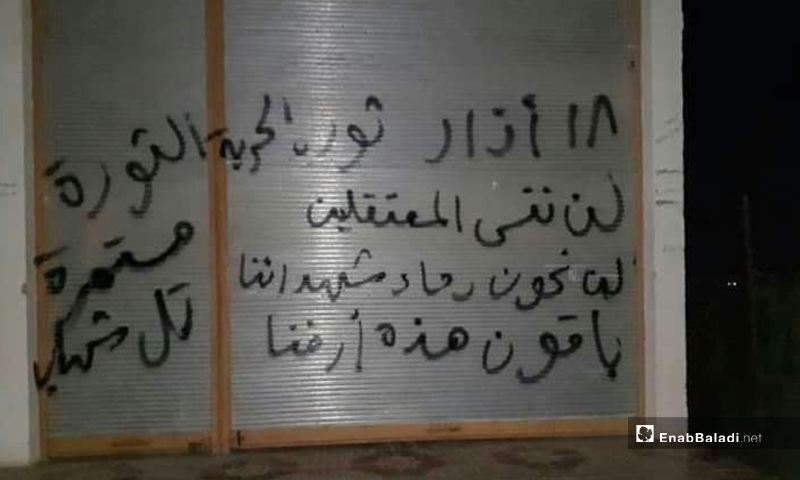 ١٨ أذار ثورة الحرية
لن ننسى المعتقلين
لن نخون دماء شهدائنا
باقون هذه أرضنا
الثورة
مستمرة
تل شهاب
EnabBaladi.net